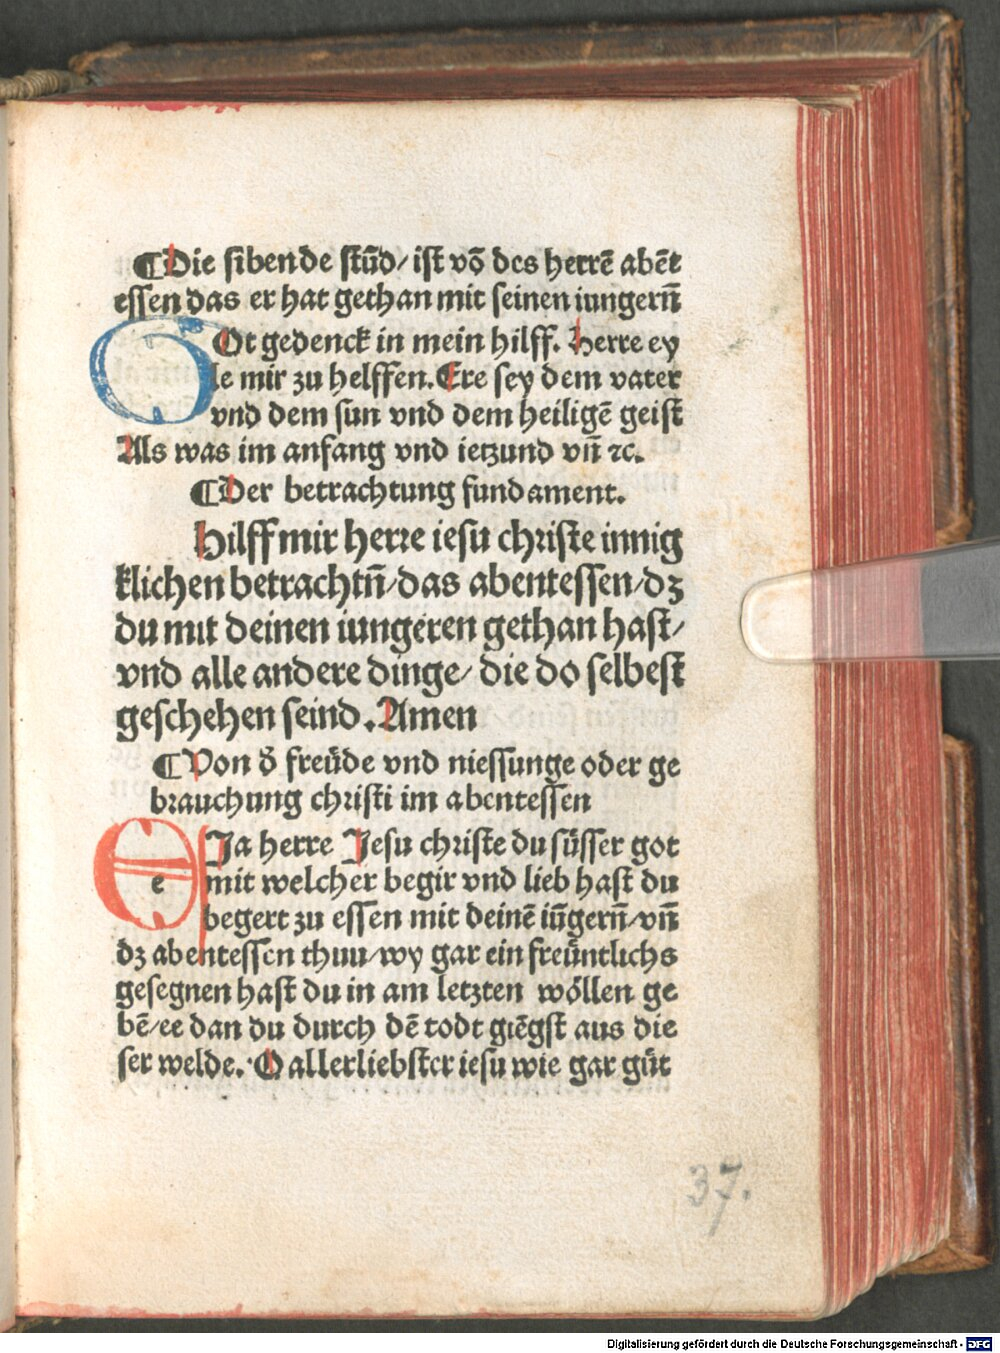 ¶Die sibende stūd/ ist vō des herrē abēt
essen das er hat gethan mit seinen iungerñ
GOt gedenck in mein hilff. Herre ey
le mir zu helffen. Ere sey dem vater
vnd dem sun vnd dem heiligē geist
Als was im anfang vnd ietzund vñ ⁊c.
¶Der betrachtung fundament.
Hilff mir herre iesu christe innig
klichen betrachtñ/das abentessen/dz
du mit deinen iungeren gethan hast/
vnd alle andere dinge/ die do selbest
geschehen seind. Amen
¶Von d̕ freüde vnd niessunge oder ge
brauchung christi im abentessen
EJa herre Jesu christe du süsser got
e mit welcher begir vnd lieb hast du
begert zu essen mit deinē iūgerñ/vñ
dz abentessen thuu/wy gar ein freüntlichs
gesegnen hast du in am letzten wöllen ge
bē/ee dan du durch dē todt giēgst aus die
ser welde. O allerliebster iesu wie gar güt
37.
Digitalisierung gefördert durch die Deutsche Forschungsgemeinschaft - DFG